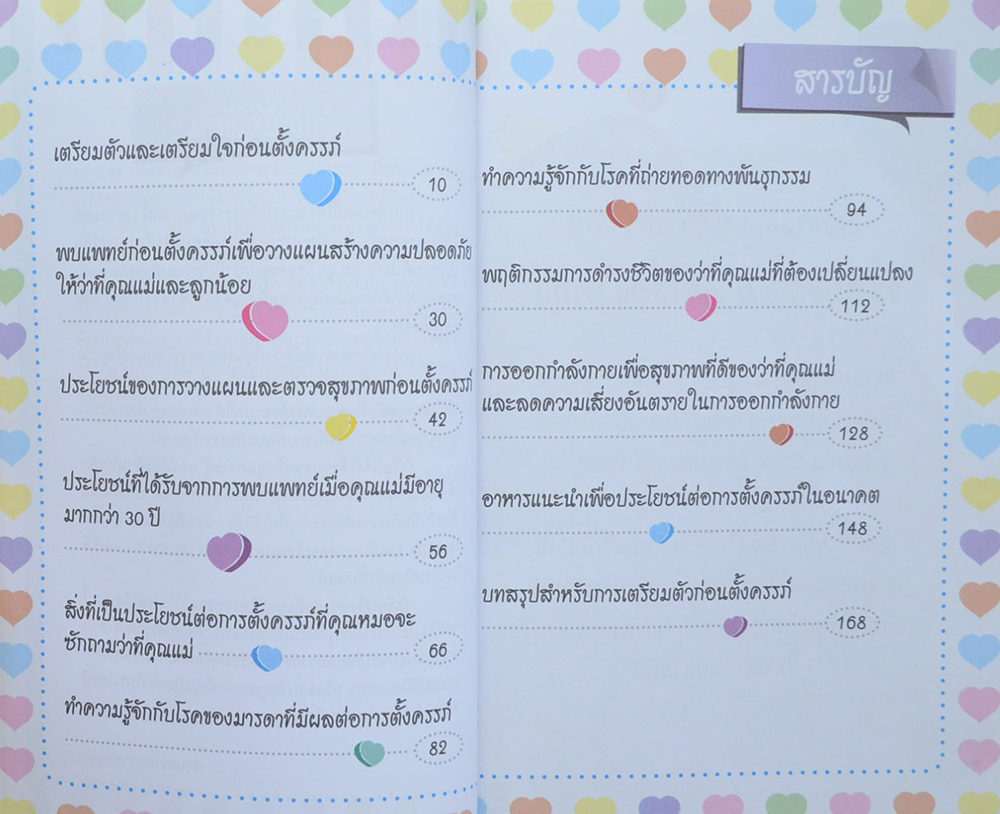 สารบัญ
เตรียมตัวและเตรียมใจก่อนตั้งครรภ์
10
พบแพทย์ก่อนตั้งครรภ์เพื่อวางแผนสร้างความปลอดภัย
ให้ว่าที่คุณแม่และลูกน้อย
30
ประโยชน์ของการวางแผนและตรวจสุขภาพก่อนตั้งครรภ์
42
ประโยชน์ที่ได้รับจากการพบแพทย์เมื่อคุณแม่มีอายุ
มากกว่า 30 ปี
56
สิ่งที่เป็นประโยชน์ต่อการตั้งครรภ์ที่คุณหมอจะ
ซักถามว่าที่คุณแม่ 66
ทำความรู้จักกับโรคของมารดาที่มีผลต่อการตั้งครรภ์
82
ทำความรู้จักกับโรคที่ถ่ายทอดทางพันธุกรรม
94
พฤติกรรมการดำรงชีวิตของว่าที่คุณแม่ที่ต้องเปลี่ยนแปลง
112
การออกกำลังกายเพื่อสุขภาพที่ดีของว่าที่คุณแม่
และลดความเสี่ยงอันตรายในการออกกำลังกาย
128
อาหารแนะนำเพื่อประโยชน์ต่อการตั้งครรภ์ในอนาคต
148
บทสรุปสำหรับการเตรียมตัวก่อนตั้งครรภ์
168